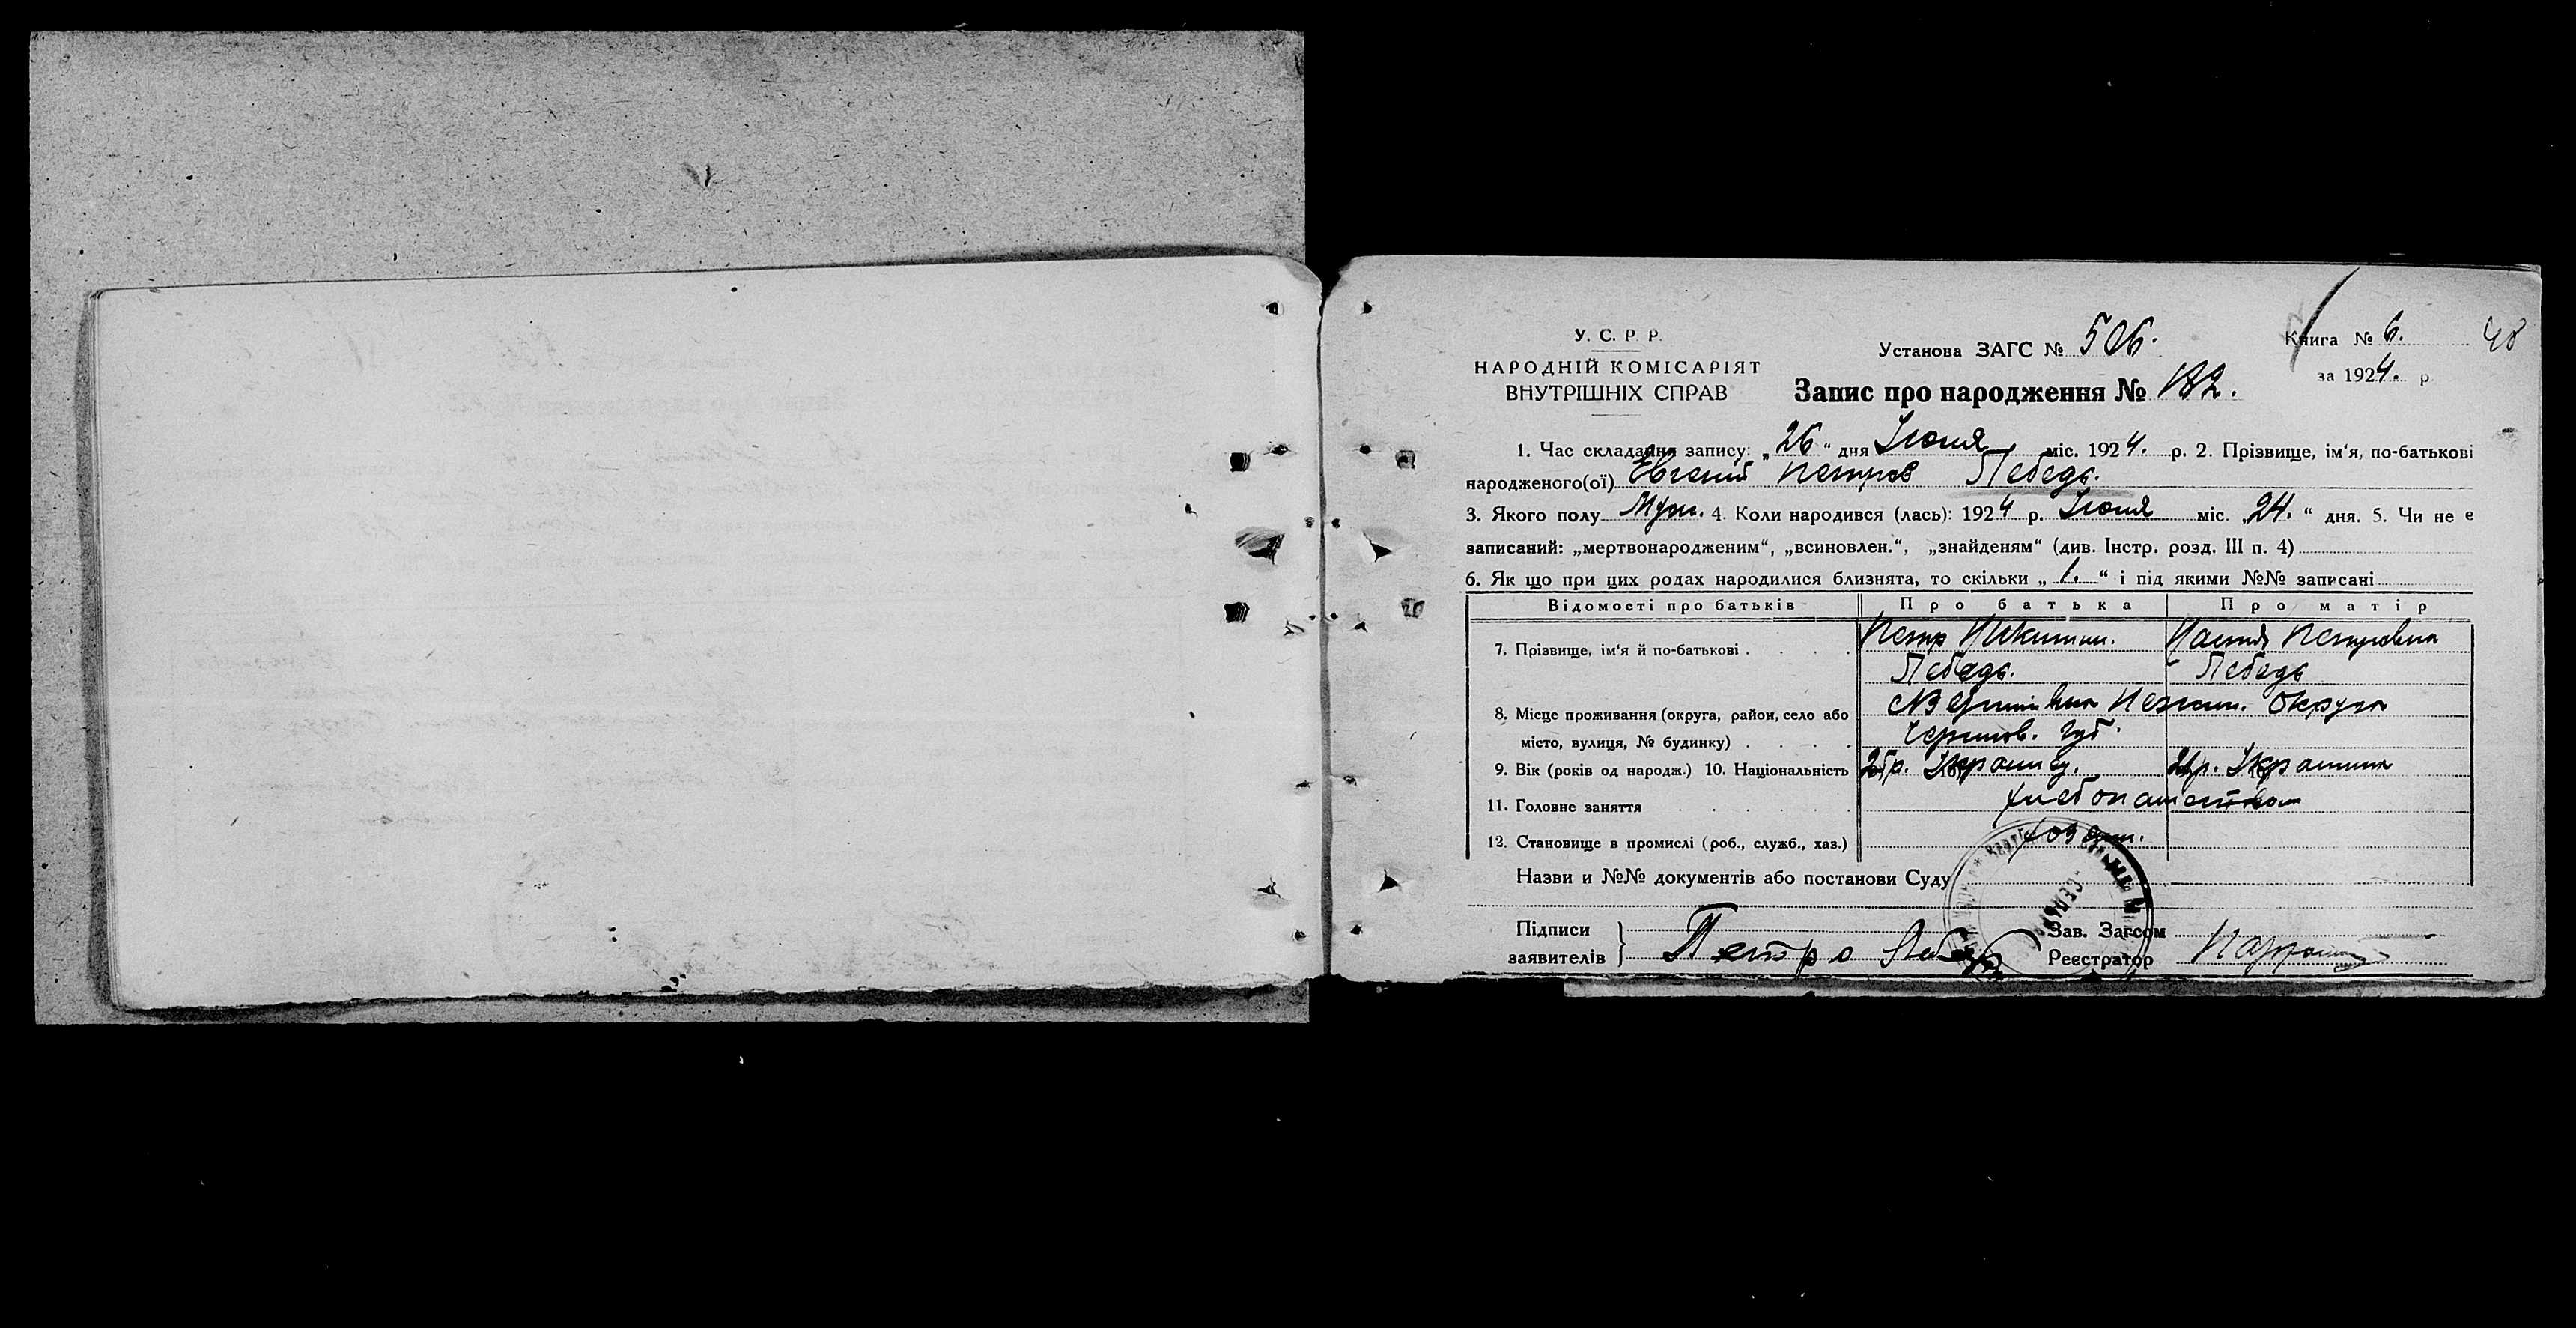 У. С. Р. Р.
НАРОДНІЙ КОМІСАРІЯТ
ВНУТРІШНІХ СПРАВ
Установа ЗАГС № 506.
Книга № 6.
48
за 1924. р
Запис про народження № 182.
1. Час складання запису: „26“ дня Июня міс. 1924. р. 2. Прізвище, ім'я, по-батькові
народженого(ої) Евгений Петров Лебедь.
3. Якого полу Муж. 4. Коли народився (лась): 1924 р. Июня міс. „24.“ дня. 5. Чи не є
записаний: „мертвонародженим“, „всиновлен.“, „знайденям“ (див. Інстр. розд. III п. 4)
6. Як що при цих родах народилися близнята, то скільки „1.“ і під якими №№ записані
Відомості про батьків Про батька Про матір
7. Прізвище, ім'я й по-батькові Петр Никитин. Настя Петровна
Лебедь. Лебедь
8. Місце проживання (округа, район, село або Нежин. Округа
місто, вулиця, № будинку) Чернигов. Губ.
9. Вік (років од народж.) 10. Національність Украинец. Украинка
11. Головне заняття хлебопашество
12. Становище в промислі (роб., служб., хаз.) хозяин.
Назви и №№ документів або постанови Суду
Підписи
заявителів Петро Лебедь
Зав. Загсом
Реєстратор